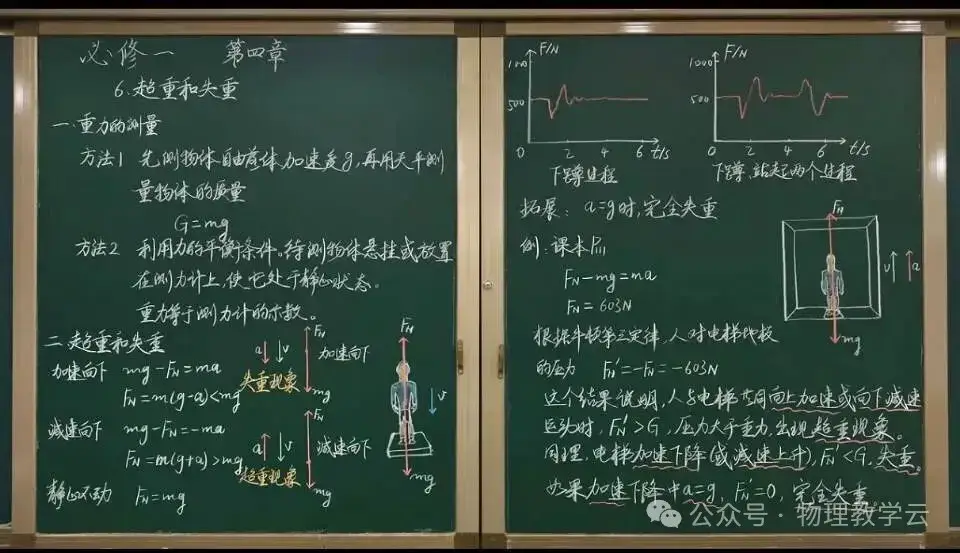 必修一 第四章
6.超重和失重
一.重力的测量
方法1 先测物体自由落体加速度g,再用天平测
量物体的质量
G=mg
方法2 利用力的平衡条件。待测物体悬挂或放置
在测力计上,使它处于静止状态。
重力等于测力计的示数。
二.超重和失重
加速向下 mg-FN=ma
FN=m(g-a)<mg
减速向下 mg-FN=-ma
FN=m(g+a)>mg
静止不动 FN=mg
a v
失重现象
FN
加速向下
mg
a v
超重现象
FN
减速向下
mg
FN
v
mg
F/N
1000
500
0 2 4 6 t/s
下蹲过程
F/N
1000
500
0 2 4 6 t/s
下蹲、站起两个过程
拓展: a=g时,完全失重
例:课本P111
FN-mg=ma
FN=603N
FN
v a
mg
根据牛顿第三定律,人对电梯地板
的压力 FN'=-FN=-603N
这个结果说明,人与电梯共同向上加速或向下减速
运动时,FN'>G,压力大于重力,出现超重现象。
同理,电梯加速下降(或减速上升),FN'<G,失重。
如果加速下降中a=g,FN'=0,完全失重
公众号·物理教学云